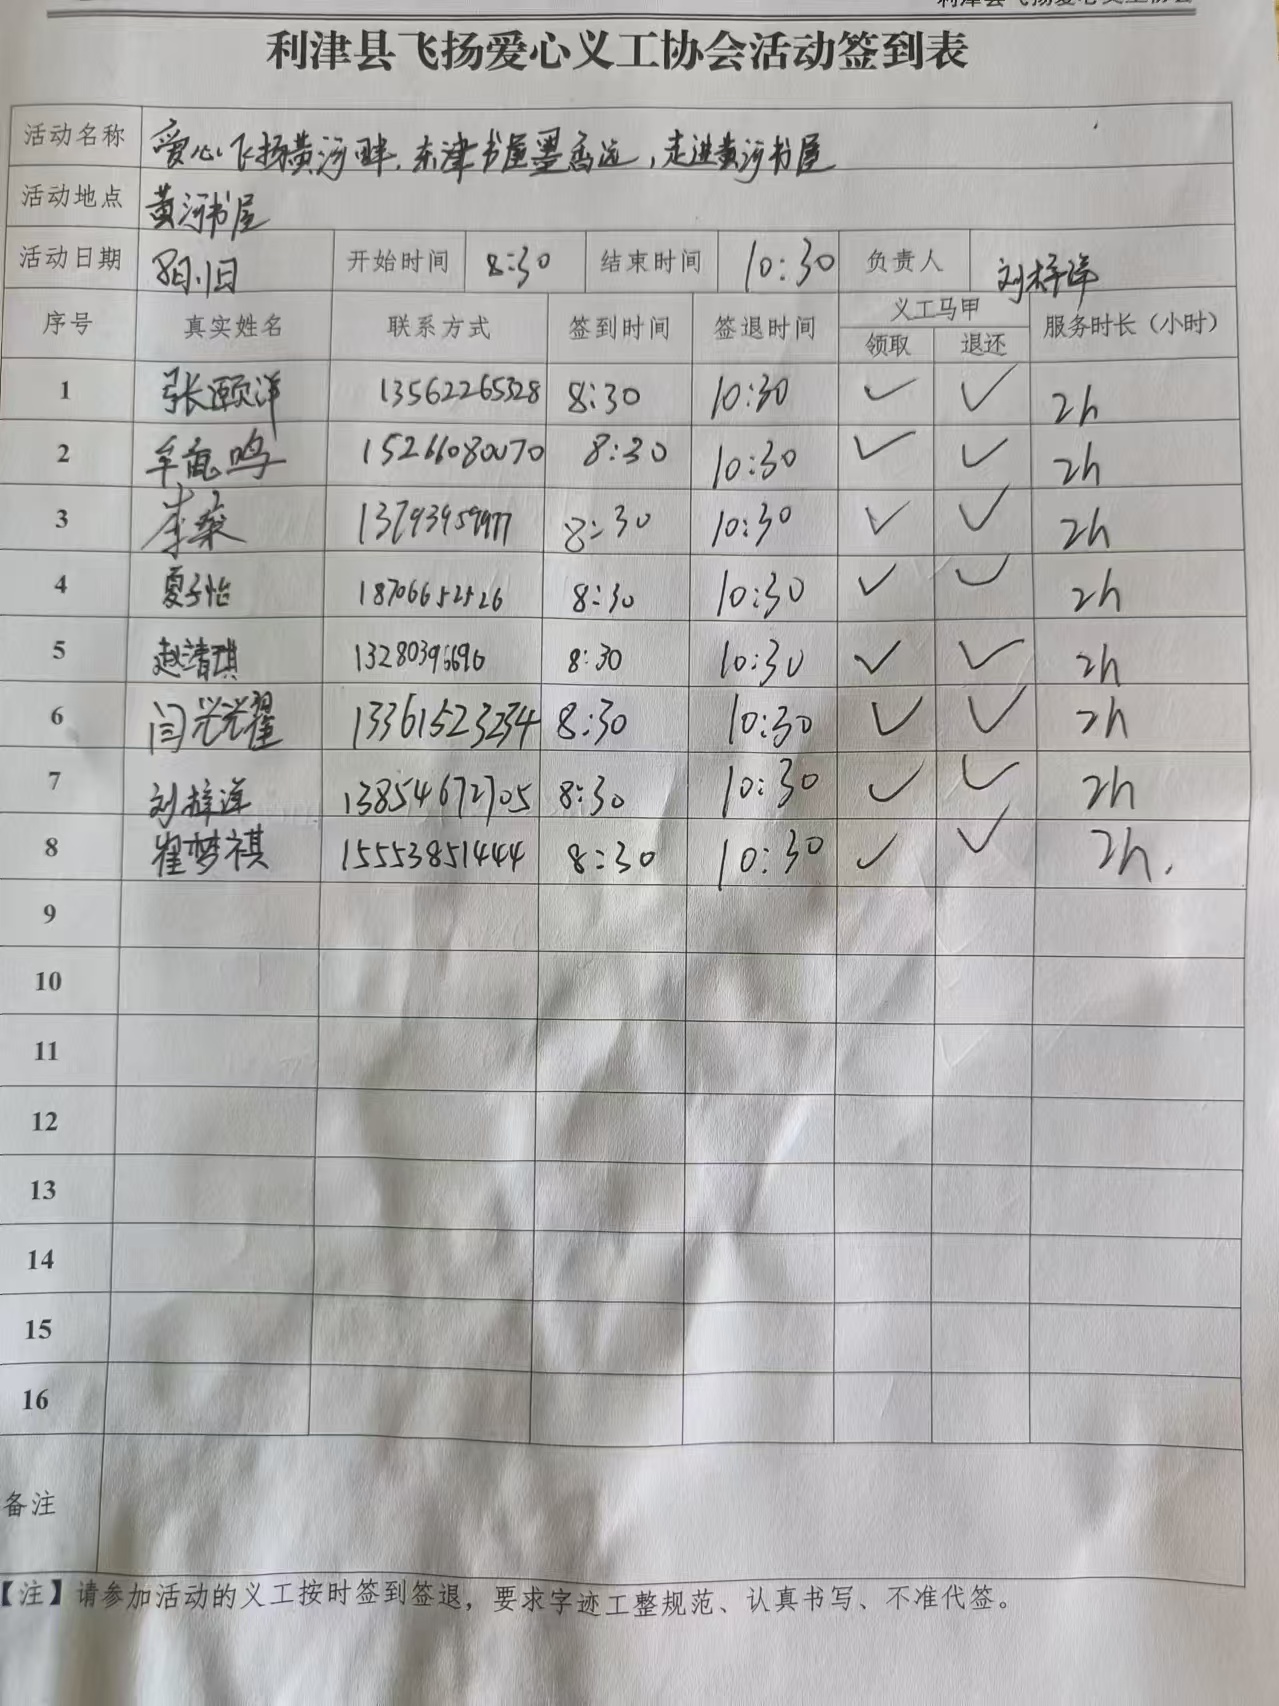 利津县飞扬爱心义工协会活动签到表
活动名称 爱心飞扬黄河畔.东津书屋墨香远,走进黄河书屋
活动地点 黄河书屋
活动日期 8月.1日 开始时间 8:30 结束时间 10:30 负责人 刘梓洋
序号 真实姓名 联系方式 签到时间 签退时间 义工马甲 服务时长（小时）
领取 退还
1 张颐洋 13562265328 8:30 10:30 ✓ ✓ 2h
2 15266080070 8:30 10:30 ✓ ✓ 2h
3 李燊 8:30 10:30 ✓ ✓ 2h
4 夏子怡 18706652526 8:30 10:30 ✓ ✓ 2h
5 赵清琪 13280396696 8:30 10:30 ✓ ✓ 2h
6 闫光耀 13361523234 8:30 10:30 ✓ ✓ 2h
7 刘梓洋 13854672705 8:30 10:30 ✓ ✓ 2h
8 崔梦祺 15553851444 8:30 10:30 ✓ ✓ 2h.
9
10
11
12
13
14
15
16
备注
【注】请参加活动的义工按时签到签退，要求字迹工整规范、认真书写、不准代签。